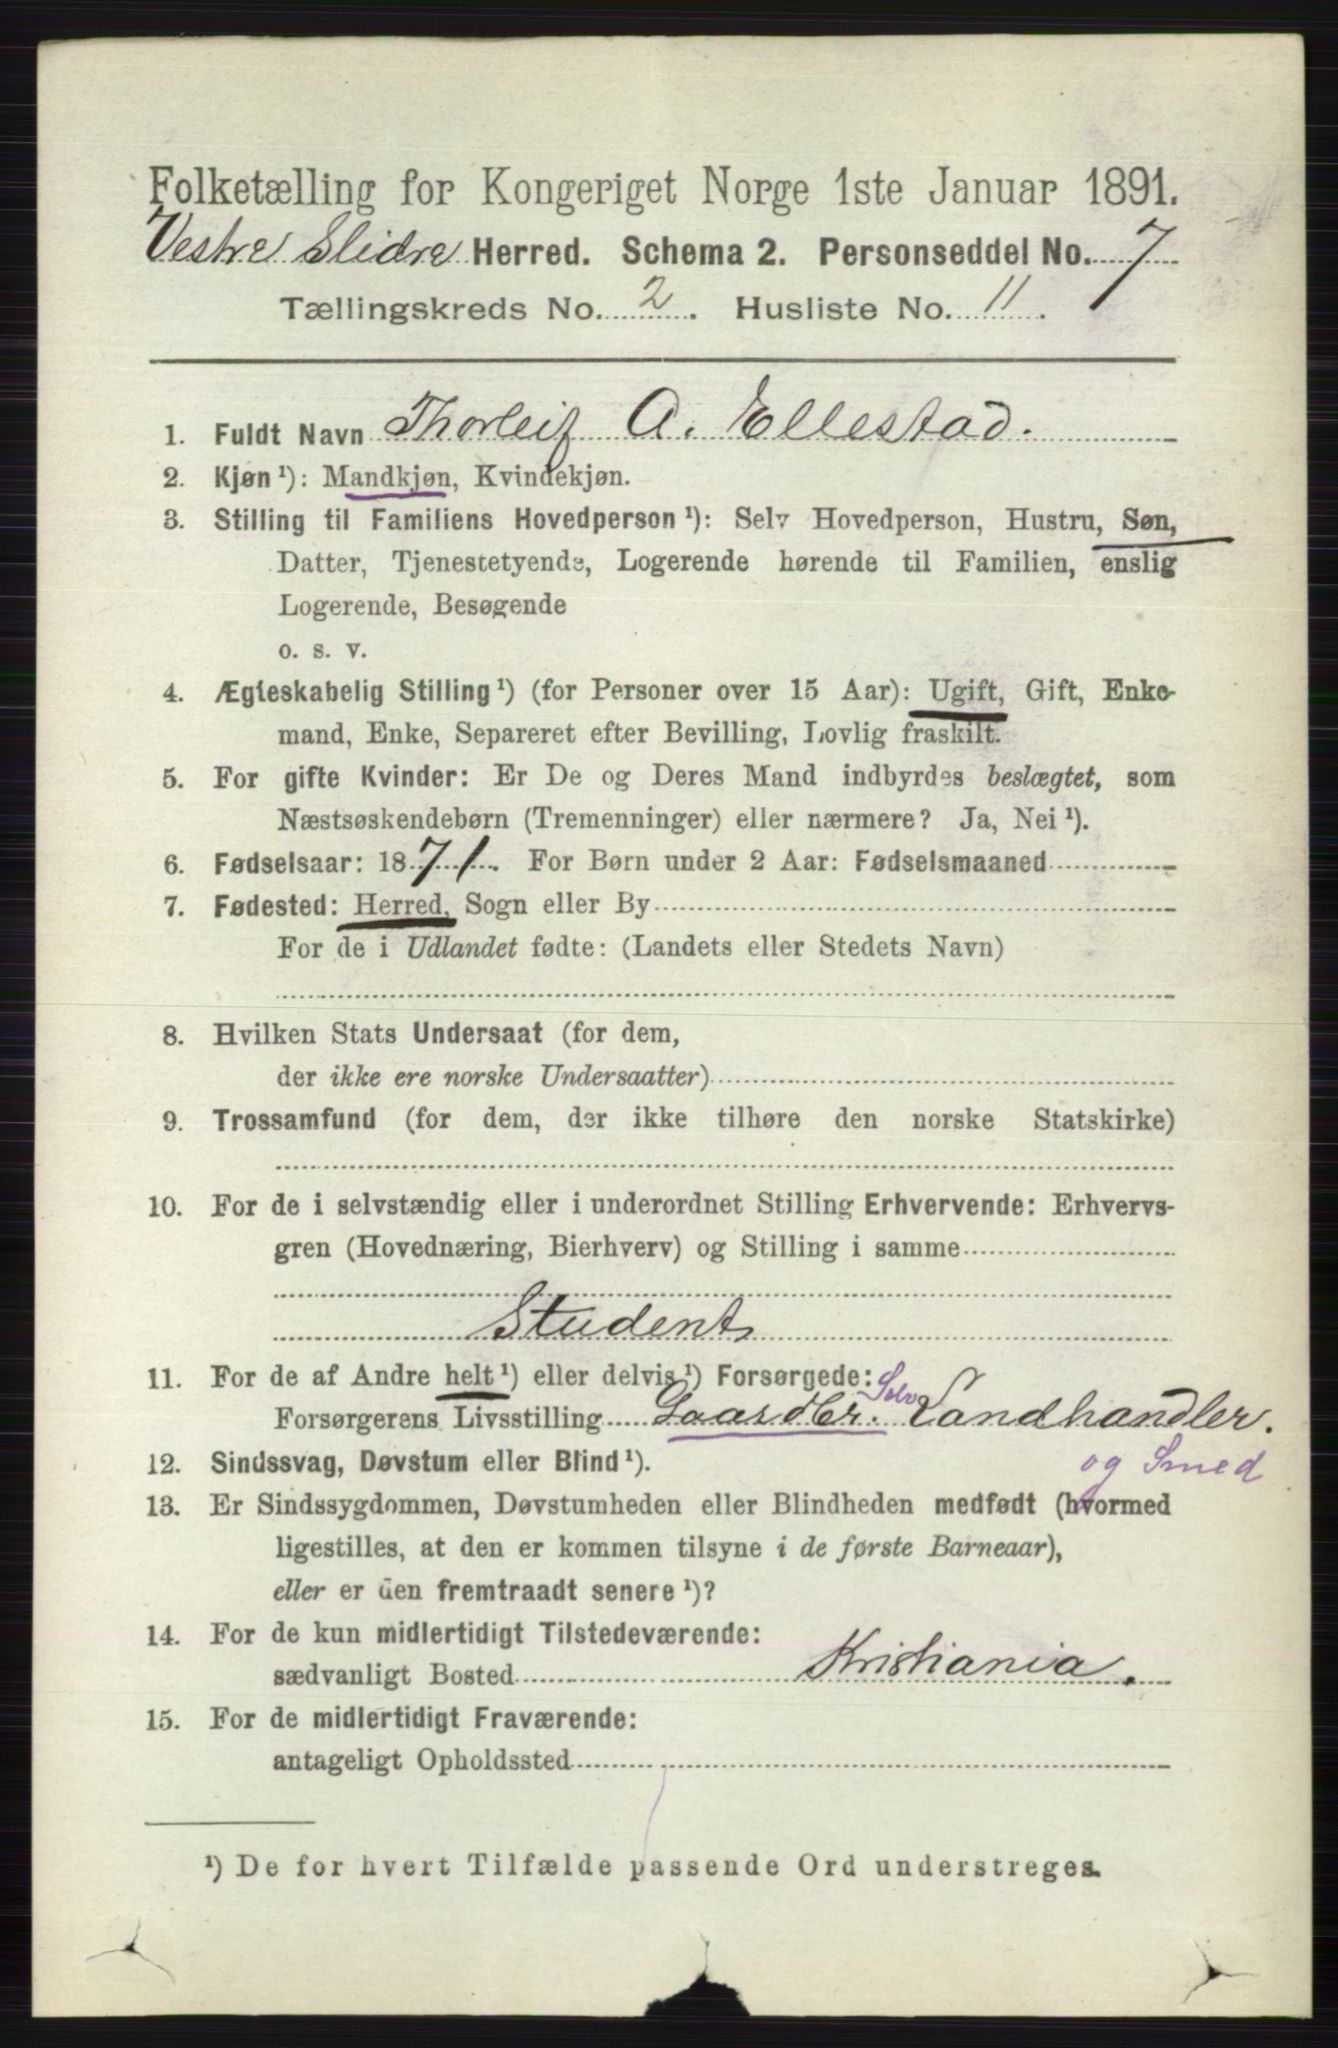 Folketælling for Kongeriget Norge 1ste Januar 1891.
Vestre Slidre Herred. Schema 2. Personseddel No. 7
Tællingskreds No. 2. Husliste No. 11.
1. Fuldt Navn Thorleif A. Ellestad.
2. Kjøn ¹): Mandkjøn, Kvindekjøn.
3. Stilling til Familiens Hovedperson ¹): Selv Hovedperson, Hustru, Søn,
Datter, Tjenestetyende, Logerende hørende til Familien, enslig
Logerende, Besøgende
o. s. v.
4. Ægteskabelig Stilling ¹) (for Personer over 15 Aar): Ugift, Gift, Enke-
mand, Enke, Separeret efter Bevilling, Lovlig fraskilt.
5. For gifte Kvinder: Er De og Deres Mand indbyrdes beslægtet, som
Næstsøskendebørn (Tremenninger) eller nærmere? Ja, Nei ¹).
6. Fødselsaar: 1871. For Børn under 2 Aar: Fødselsmaaned
7. Fødested: Herred, Sogn eller By
For de i Udlandet fødte: (Landets eller Stedets Navn)
8. Hvilken Stats Undersaat (for dem,
der ikke ere norske Undersaatter)
9. Trossamfund (for dem, der ikke tilhøre den norske Statskirke)
10. For de i selvstændig eller i underordnet Stilling Erhvervende: Erhvervs-
gren (Hovednæring, Bierhverv) og Stilling i samme
Student
11. For de af Andre helt ¹) eller delvis ¹) Forsørgede:
Forsørgerens Livsstilling Gaardbr. Selv Landhandler.
og Smed
12. Sindssvag, Døvstum eller Blind ¹).
13. Er Sindssygdommen, Døvstumheden eller Blindheden medfødt (hvormed
ligestilles, at den er kommen tilsyne i de første Barneaar),
eller er den fremtraadt senere ¹)?
14. For de kun midlertidigt Tilstedeværende:
sædvanligt Bosted Kristiania.
15. For de midlertidigt Fraværende:
antageligt Opholdssted
¹) De for hvert Tilfælde passende Ord understreges.